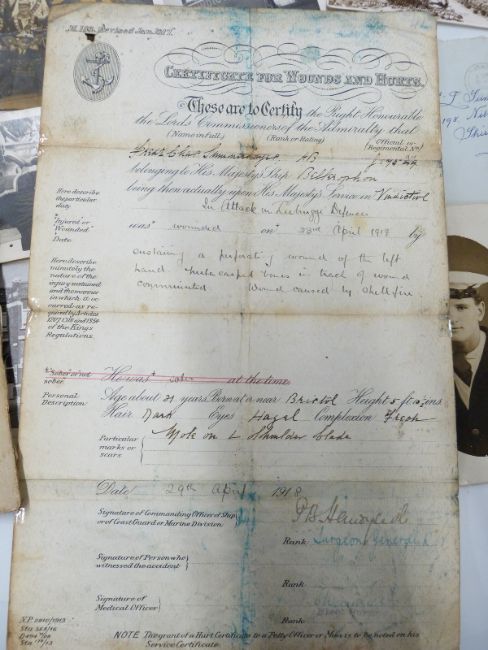 CERTIFICATE FOR WOUNDS AND HURTS.
These are to Certify the Right Honourable
the Lords Commissioners of the Admiralty that
(Name in full) (Rank or Rating) Official or Regimental No.
AB
belonging to His Majesty's Ship
being then actually upon His Majesty's Service in Vindictive
Here describe the particular duty.
In Attack on Defences
"Injured" or "Wounded"
Date.
was wounded on 23rd April 1918 by
Here describe minutely the nature of the injury sustained and the manner in which it occurred, as required by Articles 1207, 1318 and 1354 of the Kings Regulations.
sustaining a perforating wound of the left
hand bones in track of wound
comminuted Wound caused by shellfire
"Sober or not sober.
He was sober at the time
Personal Description:
Age about 21 years. Born at or near Bristol Height 5 ft ins
Hair Dark Eyes Hazel Complexion Fresh
Particular marks or scars
Mole on L Shoulder blade
Date 29th April 1918
Signature of Commanding Officer of Ship or of Coast Guard or Marine Division:
Rank Surgeon General
Signature of Person who witnessed the accident
Rank
Signature of Medical Officer
Rank
NOTE The grant of a Hurt Certificate to a Petty Officer or Man is to be noted on his Service Certificate.